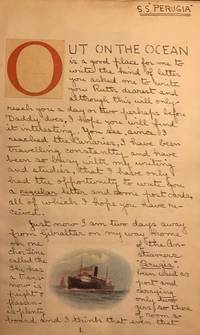 S.S "PERUGIA"
OUT ON THE OCEAN
is a good place for me to
write the kind of letter
you asked me to write
you Ruth dearest and
although this will only
reach you a day or two perhaps before
Daddy does, I hope you will find
it interesting. You see, since I
reached the Canaries, I have been
travelling constantly and have
been so busy with my writing
and studies, that I have only
had the opportunity to write you
a regular letter and some post cards,
all of which I hope you have re-
ceived.
Just now I am two days away
from Gibraltar on my way home
on one of the An-
chor Line steamers
called the "Perugia"
She has been used as
a trans- port and
now is carrying
freight only two
passen- are so far there
is plenty of room on
board. And I think that even that
1.